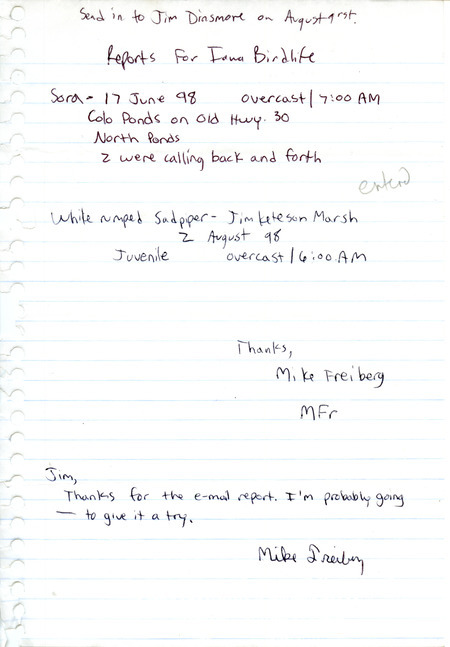 Send in to Jim Dinsmore on August 1rst.
Reports for Iowa Birdlife
Sora - 17 June 98 overcast / 7:00 AM
Colo Ponds on Old Hwy. 30
North Ponds
2 were calling back and forth
enterd
White rumped Sadpiper - Jim Keteson Marsh
2 August 98
Juvenile overcast / 6:00 AM
Thanks,
Mike Freiberg
MFr
Jim,
Thanks for the e-mail report. I'm probably going
— to give it a try.
Mike Freiberg